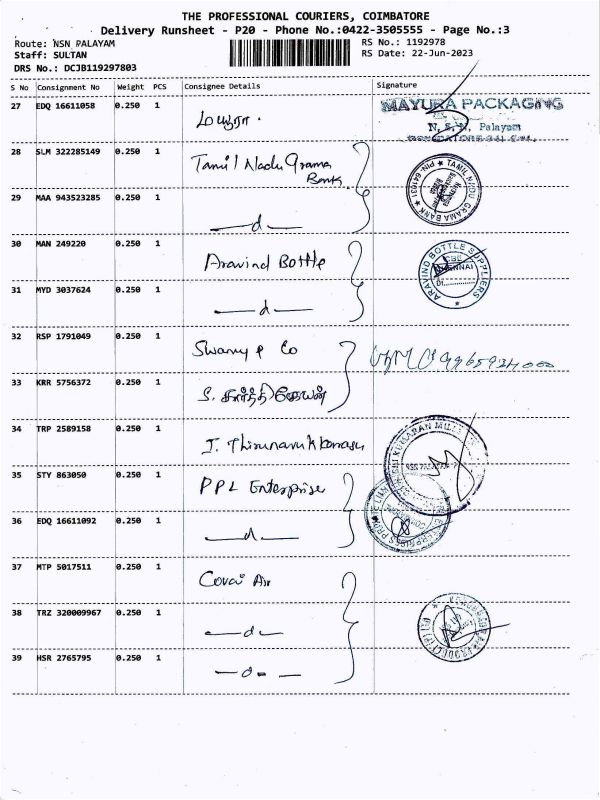 THE PROFESSIONAL COURIERS, COIMBATORE
Delivery Runsheet - P20 - Phone No.:0422-3505555 - Page No.:3
Route: NSN PALAYAM
Staff: SULTAN
DRS No.: DCJB119297803
RS No.: 1192978
RS Date: 22-Jun-2023
S No Consignment No Weight PCS Consignee Details Signature
27 EDQ 16611058 0.250 1 மயூரா .
MAYURA PACKAGING
N. S. N. Palayam
28 SLM 322285149 0.250 1 Tamil Nadu Grama
Bank.
TAMIL NADU GRAMA BANK ★ PIN- 641031 ★
29 MAA 943523285 0.250 1 — d —
30 MAN 249220 0.250 1 Aravind Bottle
ARAVIND BOTTLE SUPPLIERS
CBE
CHENNAI
31 MYD 3037624 0.250 1 — d —
32 RSP 1791049 0.250 1 Swamy & Co
33 KRR 5756372 0.250 1 S. கார்த்திகேயன்
34 TRP 2589158 0.250 1 J. Thirunavukkarasu
35 STY 863050 0.250 1 PPL Enterprise
36 EDQ 16611092 0.250 1 — d —
37 MTP 5017511 0.250 1 Covai Air
38 TRZ 320009967 0.250 1 — d —
39 HSR 2765795 0.250 1 — d — —